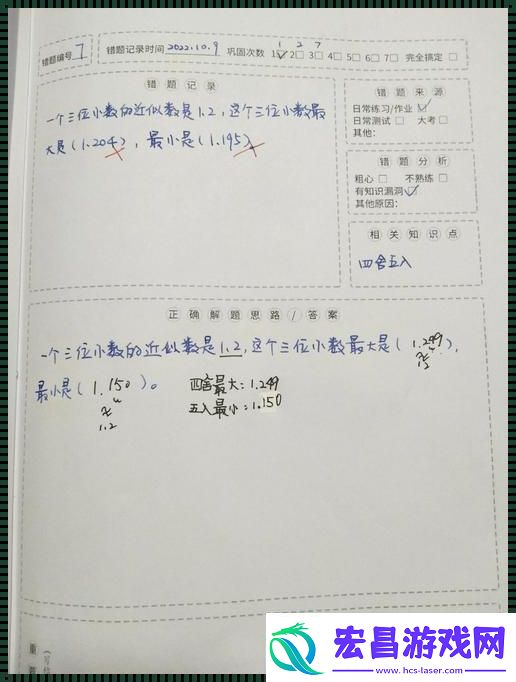 错题编号 7
错题记录时间 2022.10.9 巩固次数 1☑ 2□ 3□ 4□ 5□ 6□ 7□ 完全搞定 □
1 2 7
错题记录
一个三位小数的近似数是1.2，这个三位小数最
大是(1.204)，最小是(1.195)。
错题来源
日常练习/作业 ☑
日常测试 □ 大考 □
其他：
错题分析
粗心 □ 不熟练 □
有知识漏洞 ☑
其他原因：
相关知识点
四舍五入
正确解题思路/答案
一个三位小数的近似数是1.2，这个三位小数最大是(1.249)，
≈
1.2
最小是(1.150)。 四舍最大：1.249
五入最小：1.150
≈
1.2
宏昌游戏网
www.hcs-laser.com